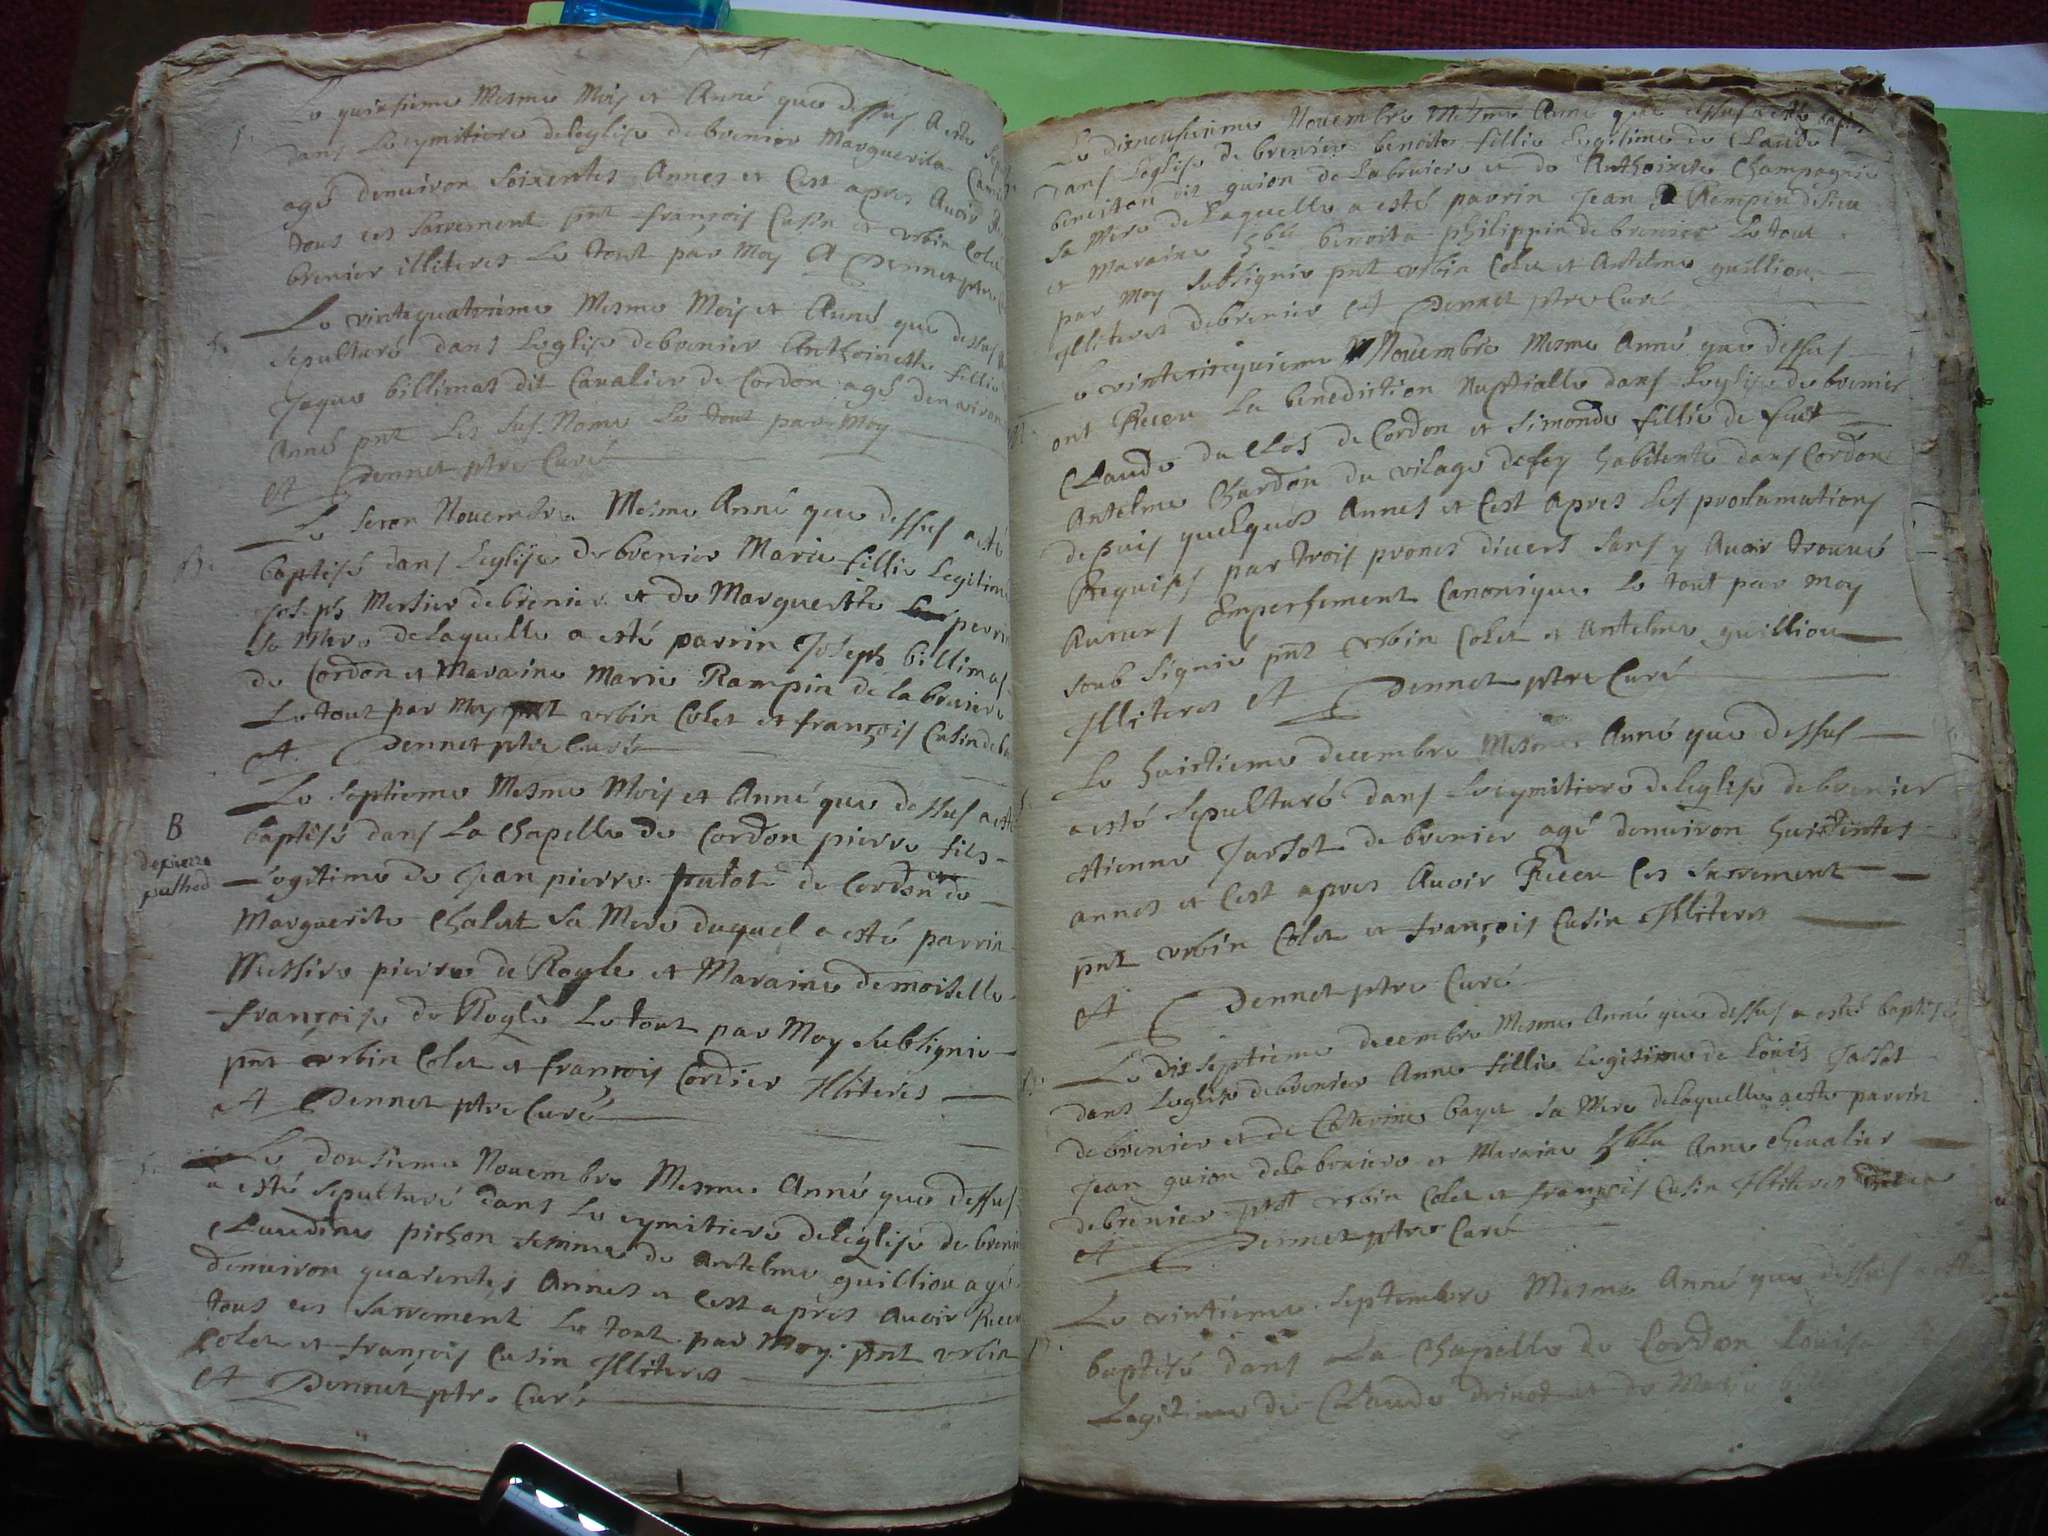 Le quinsieme Mesme Mois et Anné que dessus a esté
dans Le cymitiere de leglise de brenier Marguerite
agé denviron Soixentes Annes et Cest apres Avoir
tous ces Sacrement pnt françois Cusin et vrbin Colet
brenier illiteres Le tout par Moy Et Dennet ptre
Le vintequatrieme Mesme Mois et Anné que dessus
sepulturé dans Leglise de brenier Anthoinette fillie
Jaque billimas dit Cavalier de Cordon agé denviron
Anné pnt Les sus Nome Le tout par Moy
Et Dennet ptre Curé
Le Secon Novembre Mesme Anné que dessus a esté
baptisé dans Leglise de brenier Marie fillie Legitime
Joseph Mersier de brenier et de Marguerite
Sa Mere de Laquelle a esté parrin Joseph billimas
de Cordon et Maraine Marie Rampin de la bruiere
Le tout par Moy pnt vrbin Colet et françois Cusin
Et Dennet ptre Curé
Le Septieme Mesme Mois et Anné que dessus a esté
B
de pierre
pulhod
baptisé dans La Chapelle de Cordon pierre fils
Legitime de Jean pierre putot de Cordon et de
Marguerite Chalut Sa Mere duquel a esté parrin
Messire pierre de Rogle et Maraine demoiselle
françoise de Rogle Le tout par Moy Subsignie
pnt vrbin Colet et françois Cordier Illiteres
Et Dennet ptre Curé
Le dousieme Novembre Mesme Anné que dessus
a esté sepulturé dans Le cymitiere de leglise de brenier
Claudine pichon femme de Antelme guilliou agé
denviron quarentes Annes et Cest apres Avoir Receu
tous ces Sacrement Le tout par Moy pnt vrbin
Colet et françois Cusin Illiteres
Et Dennet ptre Curé
Le disneufsieme Novembre Mesme Anné que dessus a esté baptisé
dans Leglise de brenier benoite fillie Legitime de Claude
beneiton dit guion de Labruiere et de Anthoinete Champagnie
Sa Mere de Laquelle a esté parrin Jean Rempin
et Maraine hble benoita philippin de brenier Le tout
par Moy Subsignie pnt vrbin Colet et Antelme guilliou
Illiteres de brenier Et Dennet ptre Curé
Le vintecinquieme Novembre Mesme Anné que dessus
ont Receu La benediction Nuptialle dans Leglise de brenier
Claude du Clos de Cordon et Simonde fillie de fut
Antelme Chardon du vilage de fey habitente dans Cordon
depuis quelques Annes et Cest Apres Les proclamations
Requises par trois prones divers Sans y Avoir trouvé
Aucuns Enpersement Canonique Le tout par Moy
soub signié pnt vrbin Colet et Antelme guilliou
Illiteres Et Dennet ptre Curé
Le huictieme decembre Mesme Anné que dessus
a esté sepulturé dans Le cymitiere de leglise de brenier
Etienne Jarsot de brenier agé denviron huictintes
annes et Cest apres Avoir Receu Ces Sacrement
pnt vrbin Colet et françois Cusin Illiteres
Et Dennet ptre Curé
Le dix septieme decembre Mesme Anné que dessus a esté baptisé
dans Leglise de brenier Anne fillie Legitime de Louis Jassot
de brenier et de Caterine bayet Sa Mere de Laquelle a esté parrin
Jean guion de la bruiere et Maraine hble Anne Chevalier
de brenier pnt vrbin Colet et françois Cusin Illiteres
Et Dennet ptre Curé
Le vintieme Septembre Mesme Anné que dessus a esté
baptisé dans La Chapelle de Cordon Louise
Legitime de Claude drinet et de Marie